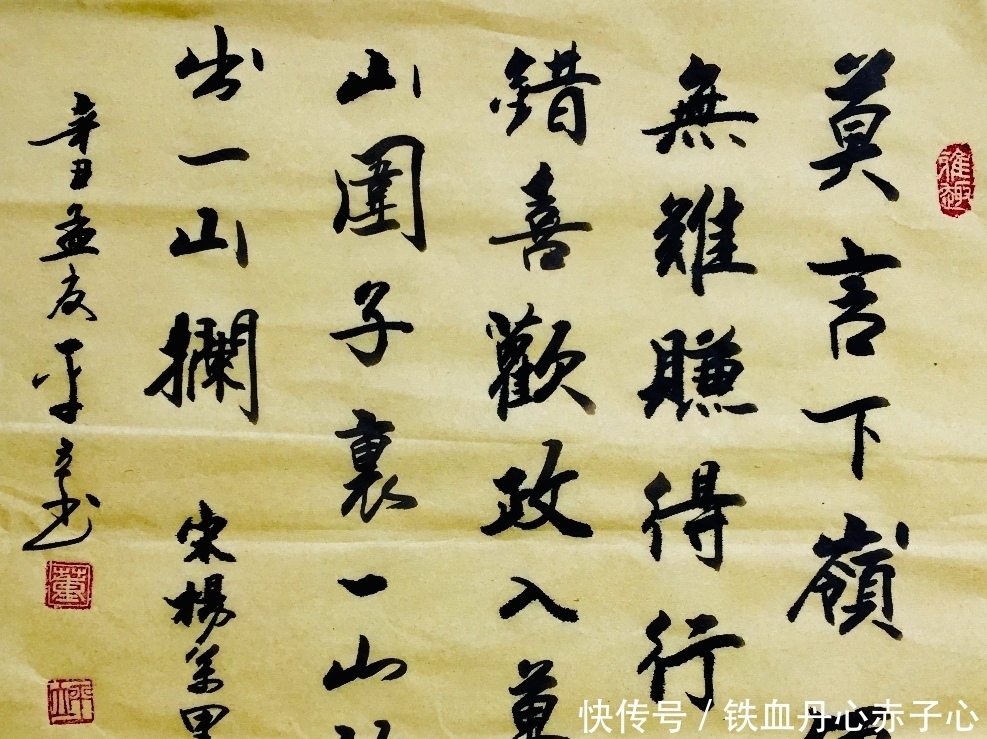 雅趣
莫言下嶺
無難賺得行
錯喜歡政入萬
山圍子裏一山
出一山攔 宋楊萬里
辛丑孟夏平
董
快传号 / 铁血丹心赤子心